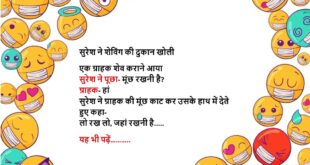 सुरेश ने शेविंग की दुकान खोली
एक ग्राहक शेव कराने आया
सुरेश ने पूछा- मूंछ रखनी है?
ग्राहक- हां
सुरेश ने ग्राहक की मूंछ काट कर उसके हाथ में देते
हुए कहा-
लो रख लो, जहां रखनी है.....
यह भी पढ़ें..........